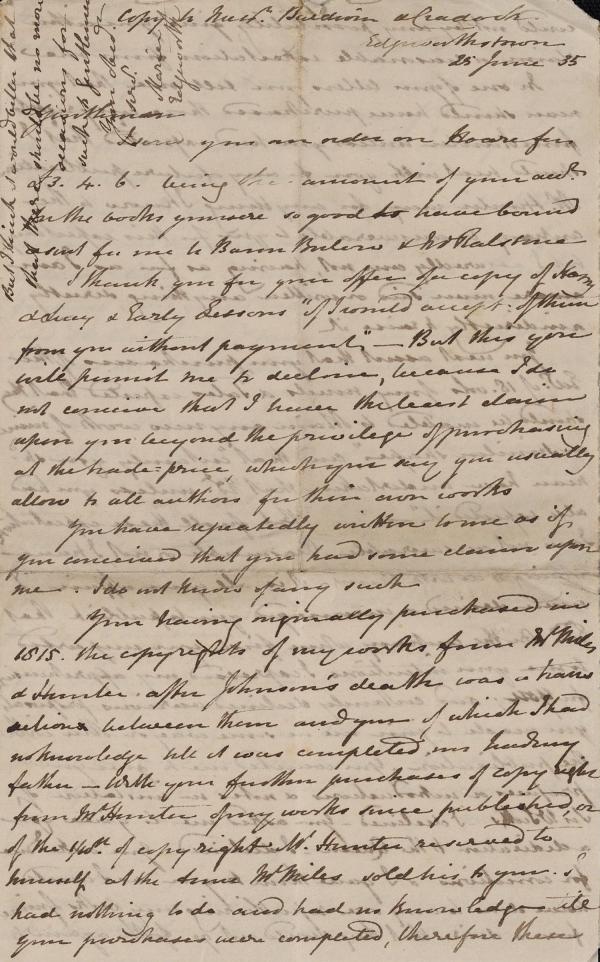 Copy to Messrs. Baldwin & Cradock
Edgeworthstown
25 June 35
Gentlemen
I send you an order on Boare for
£3. 4. 6. being the amount of your acct.
for the books you were so good to have bound
& sent for me to Baron Bulow & Mr Ralstone
I thank you for your offer of a copy of Harry
& Lucy & Early Lessons "if I would accept of them
from you without payment" — But this you
will permit me to decline, because I do
not conceive that I have the least claim
upon you beyond the privilege of purchasing
at the trade=price, which you say you usually
allow to all authors for their own works
You have repeatedly written to me as if
you conceived that you had some claim upon
me. I do not know of any such
Your having originally purchased in
1815. the copyrights of my works from Mr Miles
& Hunter after Johnson's death was a trans
action between them and you of which I had
no knowledge till it was completed, nor had my
father — With your further purchases of copy right
from Mr Hunter of my works since published, or
of the copy right Mr. Hunter reserved to
himself at the time Mr Miles sold his to you. I
had nothing to do and had no knowledge till
your purchases were completed, therefore these
But I think I would rather that
that there should be no more
occasion for
such Gentlemen
Your obed.
Servt.
Maria
Edgeworth